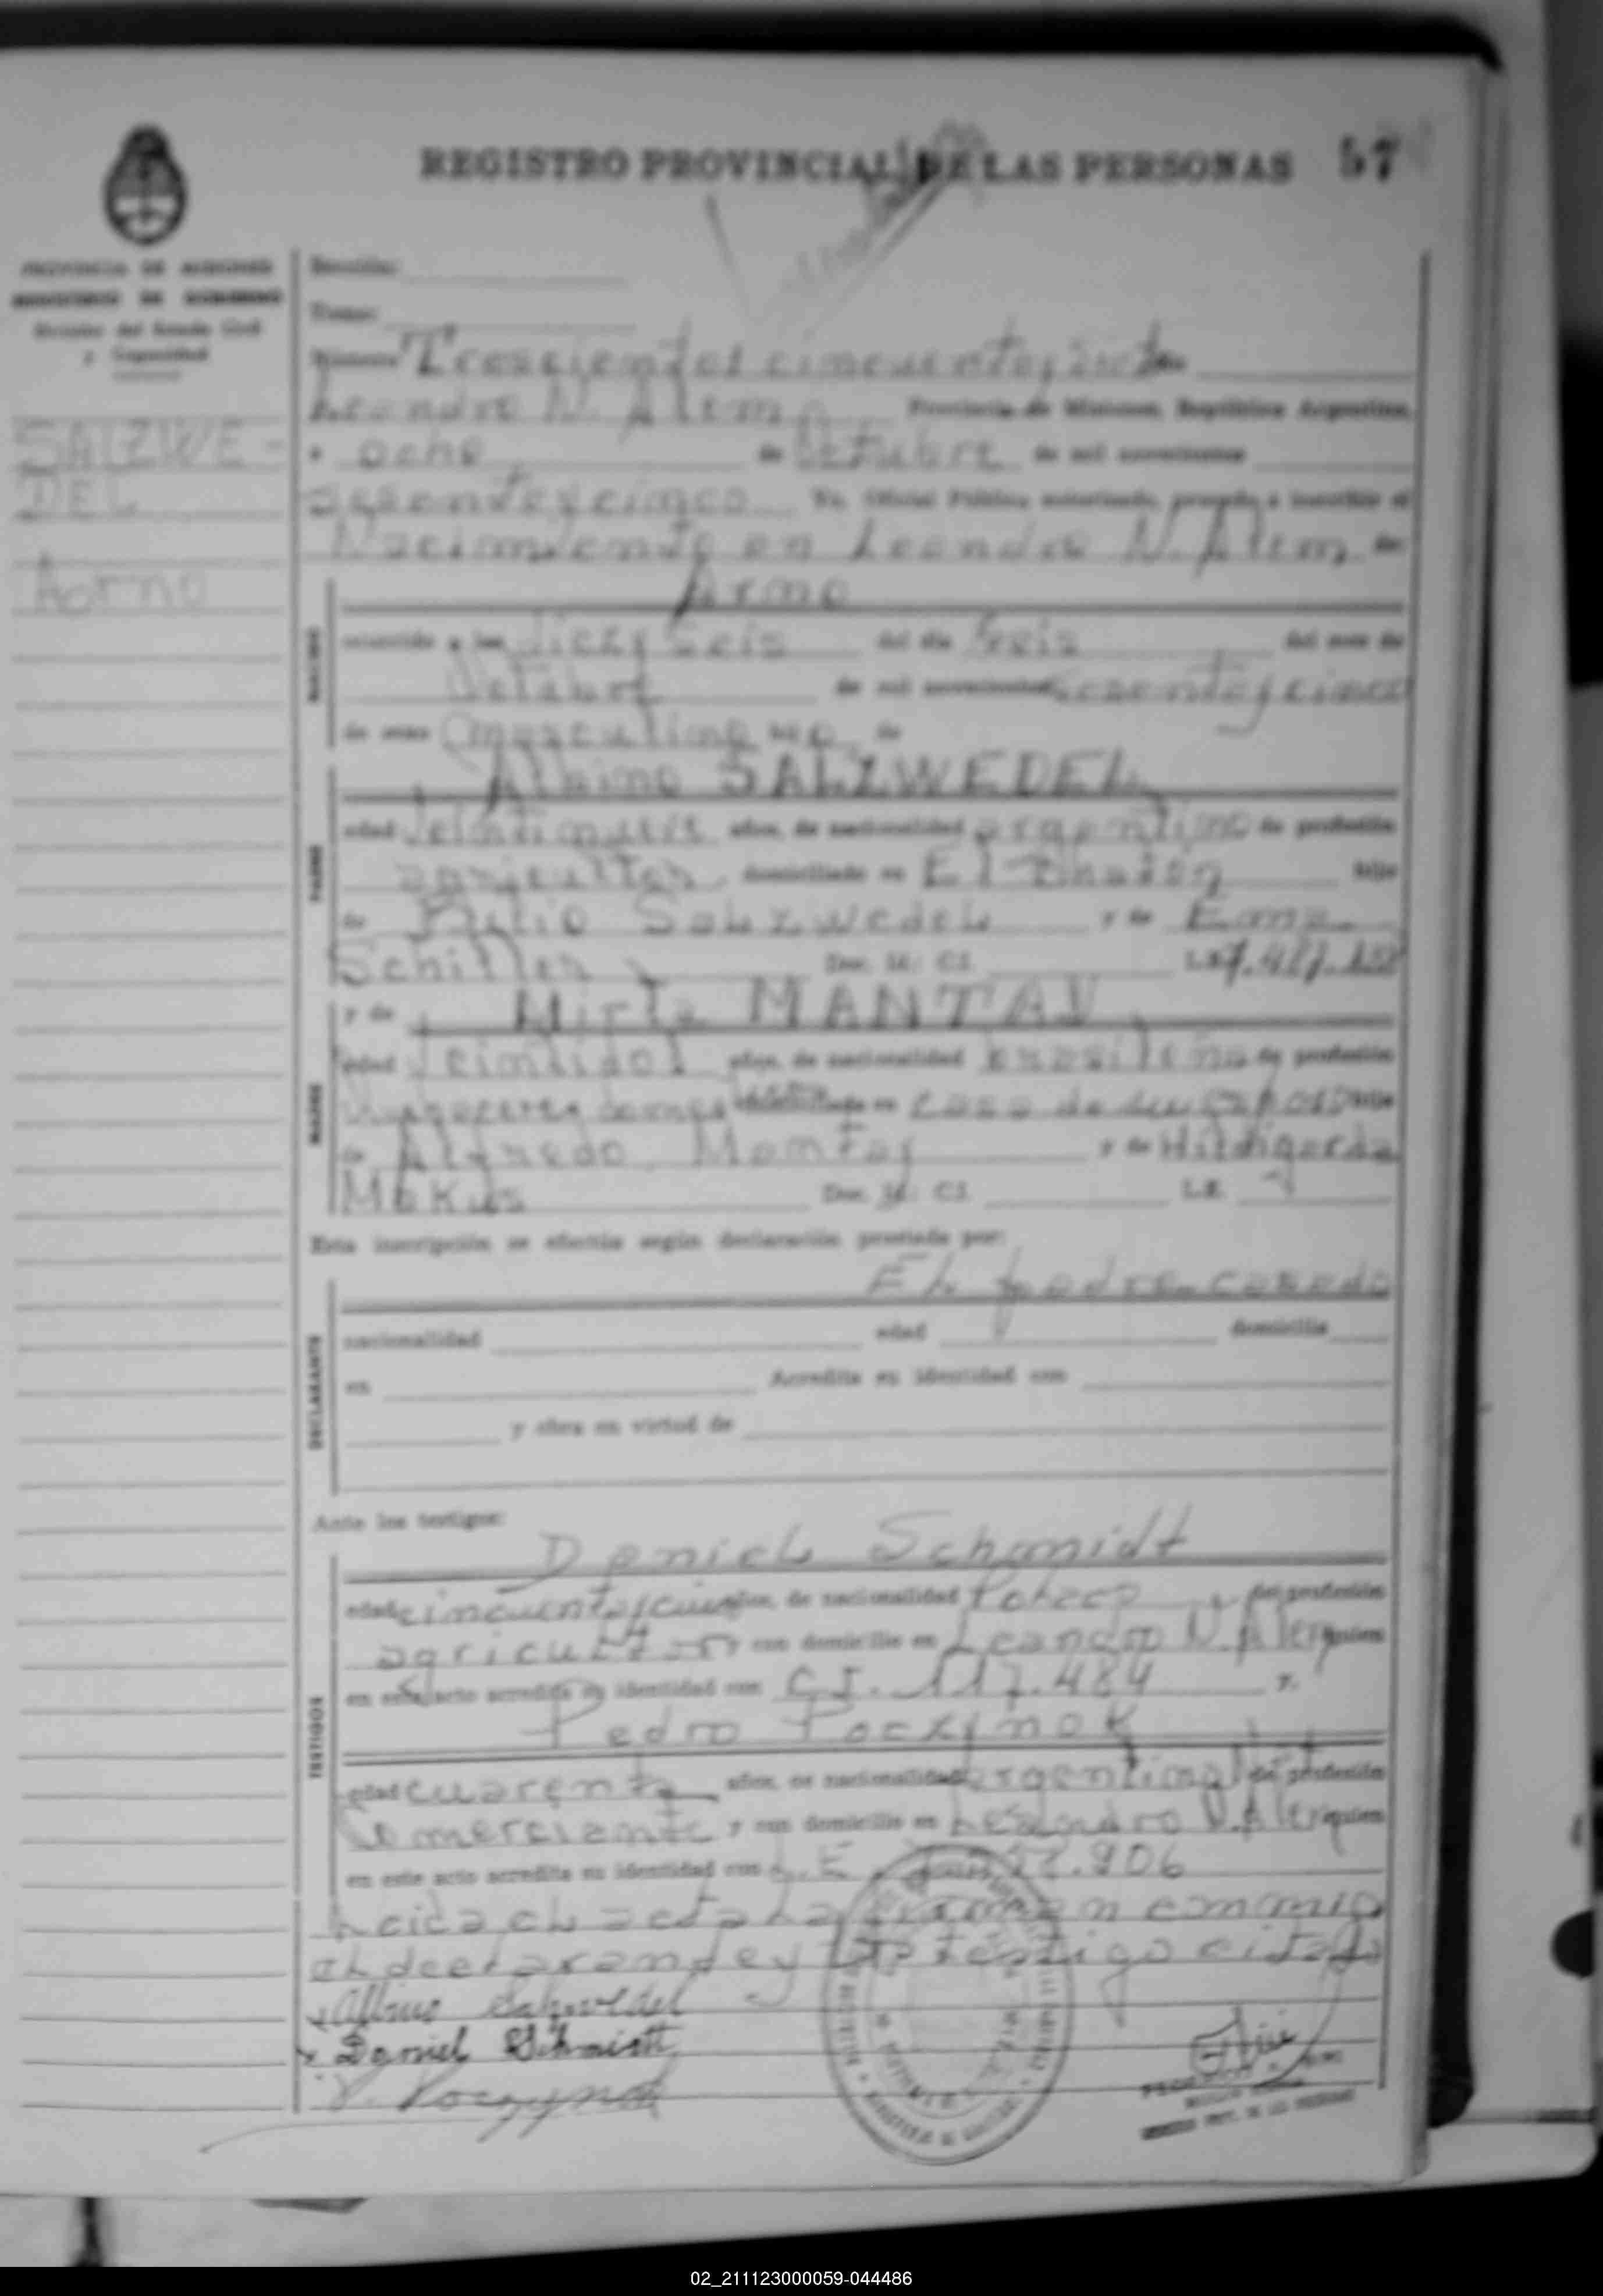 REGISTRO PROVINCIAL DE LAS PERSONAS 57
PROVINCIA DE MISIONES
MINISTERIO DE GOBIERNO
División del Estado Civil
y Capacidad
SALZWE-
DEL
Arno
Sección:
Tomo:
Número Trescientos cincuentaysiete
Leandro N. Alem Provincia de Misiones, República Argentina,
a ocho de Octubre de mil novecientos
sesentaycinco Yo, Oficial Público autorizado, procedo a inscribir el
Nacimiento en Leandro N. Alem de:
Arno
NACIDO
ocurrido a las diezyseis del día seis del mes de
Octubre de mil novecientos sesentaycinco
de sexo masculino de
Albino SALZWEDEL
PADRE
edad años, de nacionalidad argentino de profesión
agricultor domiciliado en El hijo
de Julio Salzwedel y de Ema
Schiller Doc. Id.: C.I. L.E.
y de Mirta MANTAY
MADRE
edad veintidos años, de nacionalidad brasileña de profesión
domiciliada en casa de su esposo hija
de Alfredo Mantay y de Hildigarda
Mokus Doc. Id.: C.I. L.E.
Esta inscripción se efectúa según declaración prestada por:
El padre casado
DECLARANTE
nacionalidad edad domicilio
en Acredita su identidad con
y obra en virtud de
Ante los testigos:
Daniel Schmidt
TESTIGOS
edad años, de nacionalidad Polaco de profesión
agricultor y con domicilio en Leandro N Alem quien
en este acto acredita su identidad con C.I. 117.484 y,
Pedro Poczynok
edad cuarenta años, de nacionalidad argentina de profesión
Comerciante y con domicilio en Leandro N. Alem quien
en este acto acredita su identidad con L.E.
Leida el acta la firman conmigo
el declarante y los testigo citado
Albino Salzwedel
Daniel Schmidt
P. Poczynok
02_211123000059-044486